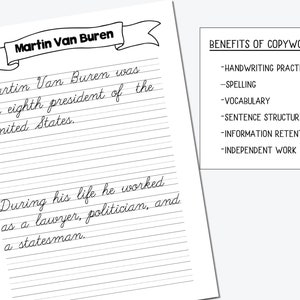 Martin Van Buren
Martin Van Buren was
eighth president of the
United States.
During his life he worked
as a lawyer, politician, and
a statesman.
BENEFITS OF COPYWO
-HANDWRITING PRACTI
-SPELLING
-VOCABULARY
-SENTENCE STRUCTUR
-INFORMATION RETENT
-INDEPENDENT WORK